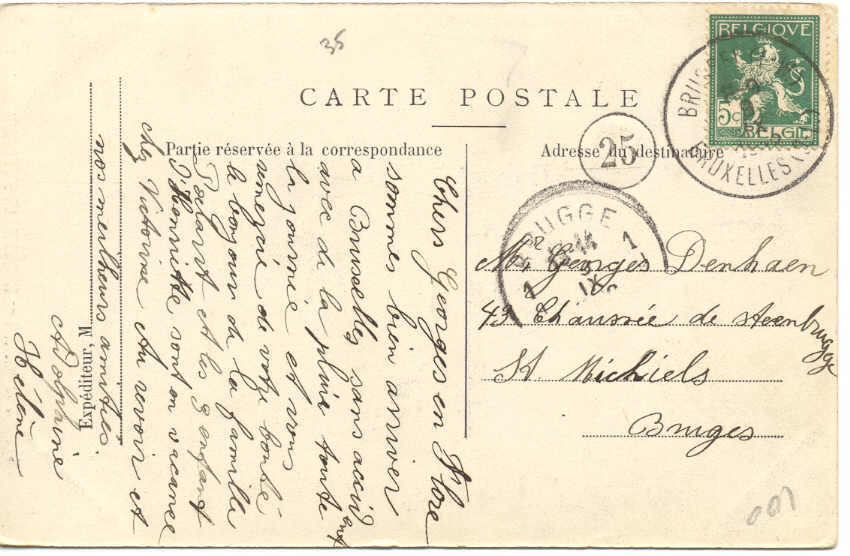 35
BELGIQUE
5c
BELGIË
BRUXELLES
CARTE POSTALE
Partie réservée à la correspondance
Adresse du destinataire
25
BRUGGE
1 1
14
IX
Expéditeur, M
Chers Georges en Flore
sommes bien arriver
a Bruxelles sans accid ent
avec de la pluie toute
la journie et vous
remercié de votre bonté
le bonjour de la famille
et les 3 enfant
d'Henriette sont en vacance
chez Victorine Au revoir et
nos meilheurs amitiés
Adolphine
Hélène
Mr Georges Denhaen
43 Chaussée de Steenbrugge
St Michiels
Bruges
001